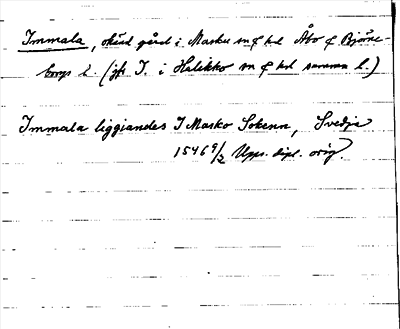 Immala, okänd gård i Masku sn o hd Åbo o Björne-
borgs l. (jfr I. i Halikko sn o hd samma l.)
Immala liggiandes I Masko Sokenn, Svedje
1546 9/2 Upps. dipl. orig.